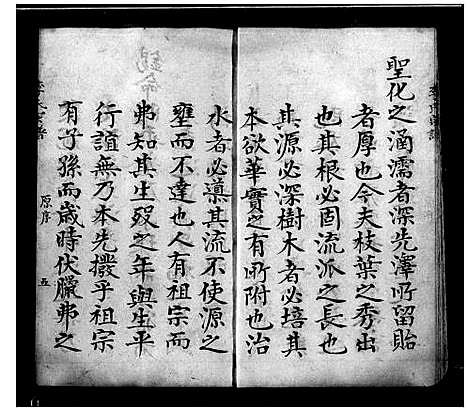 聖化之涵濡者深先澤所留貽
者厚也今夫枝葉之秀出
也其根必固流派之長也
其源必深樹木者必培其
本欲華實之有所附也治
水者必導其流不使源之
壅而不達也人有祖宗而
弗知其生殁之年與生平
行誼無乃本先撥乎祖宗
有子孫而歲時伏臘弗之
原序
五